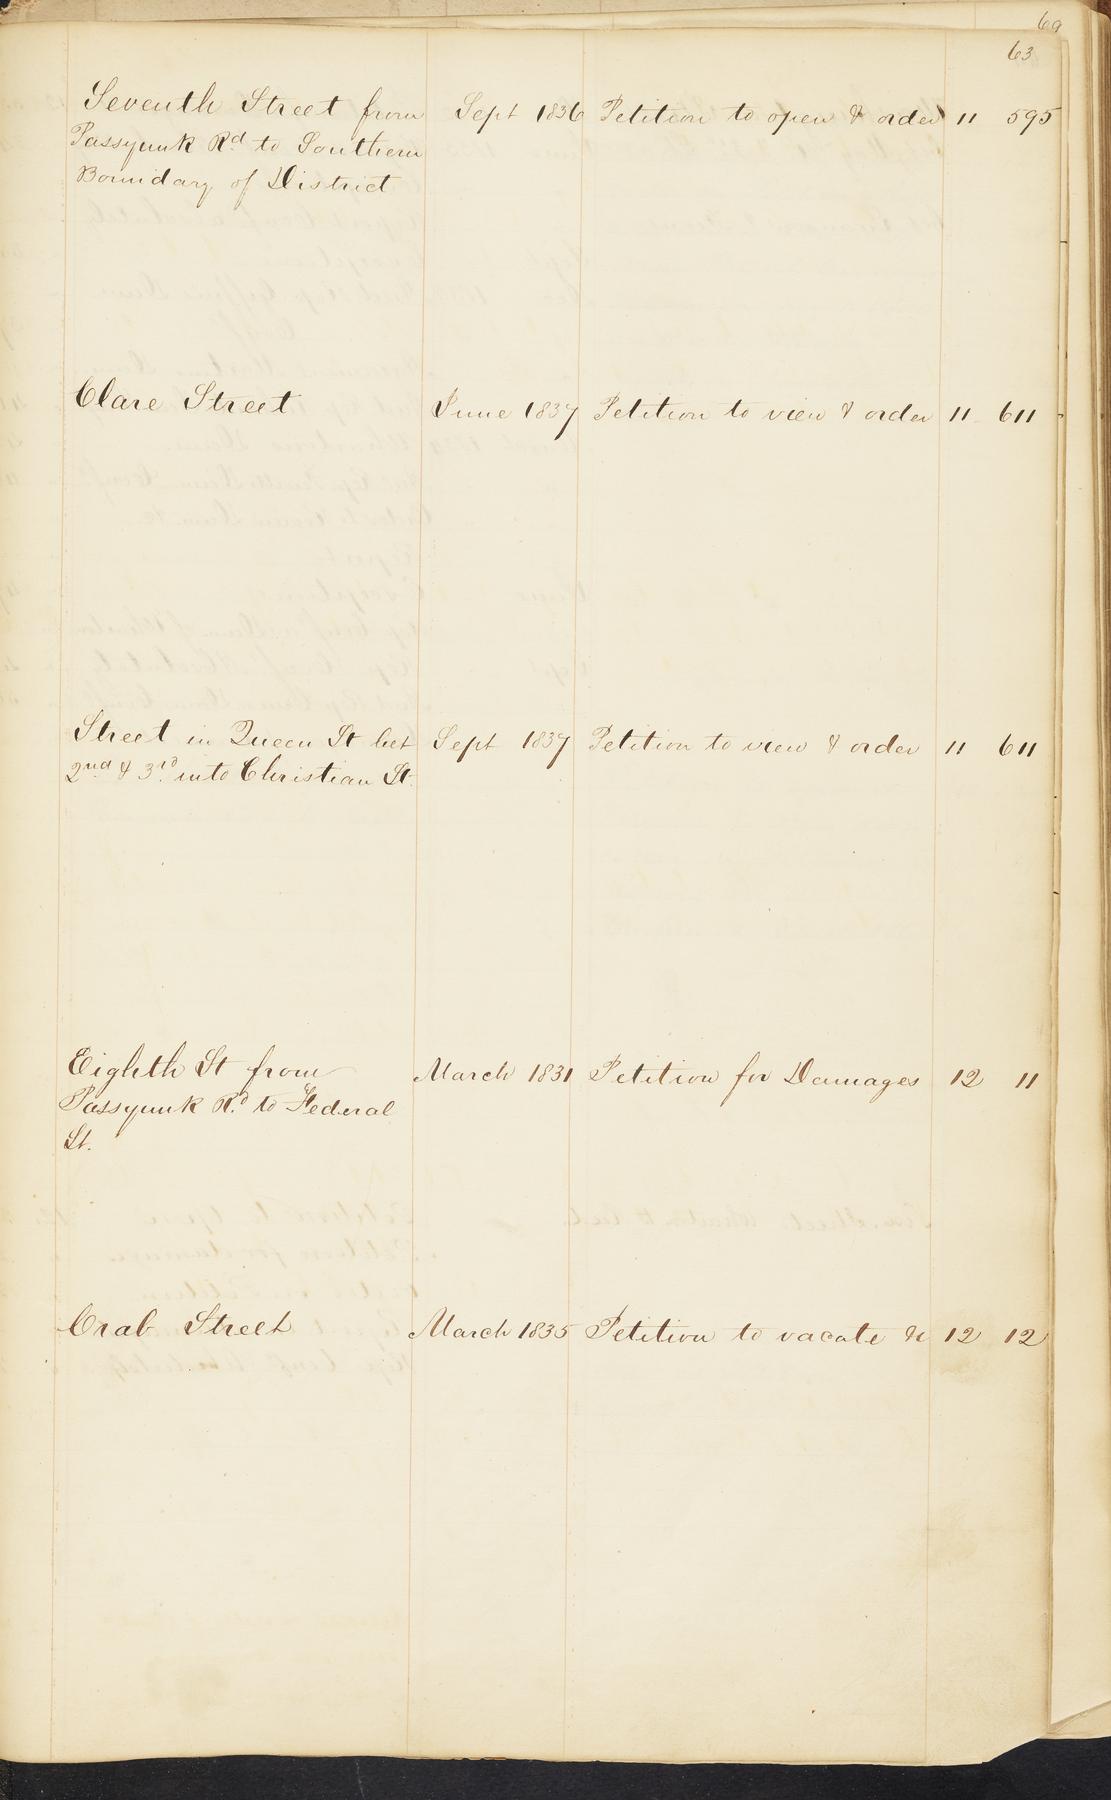 69
63
Seventh Street from Sept 1836 Petition to open & order 11 595
Passyunk Rd to Southern
Boundary of District
Clare Street June 1837 Petition to view & order 11 611
Street in Queen St bet Sept 1837 Petition to view & order 11 611
2nd & 3rd into Christian St.
Eighth St from March 1831 Petition for Damages 12 11
Passyunk Rd to Federal
St.
Crab Street March 1835 Petition to vacate &c 12 12